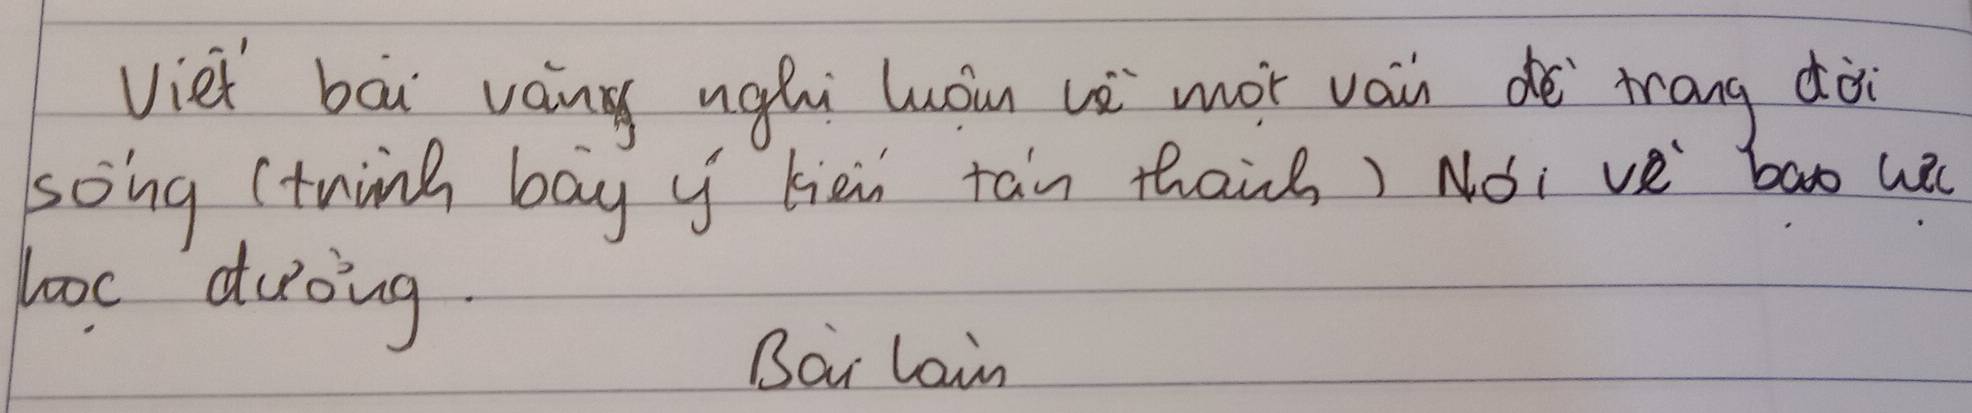 Viết bài văng nghị luận về một vấn đề trong đời
sống (trình bày ý kiến tán thành) Nói về bạo lực
học đường.
Bài làm